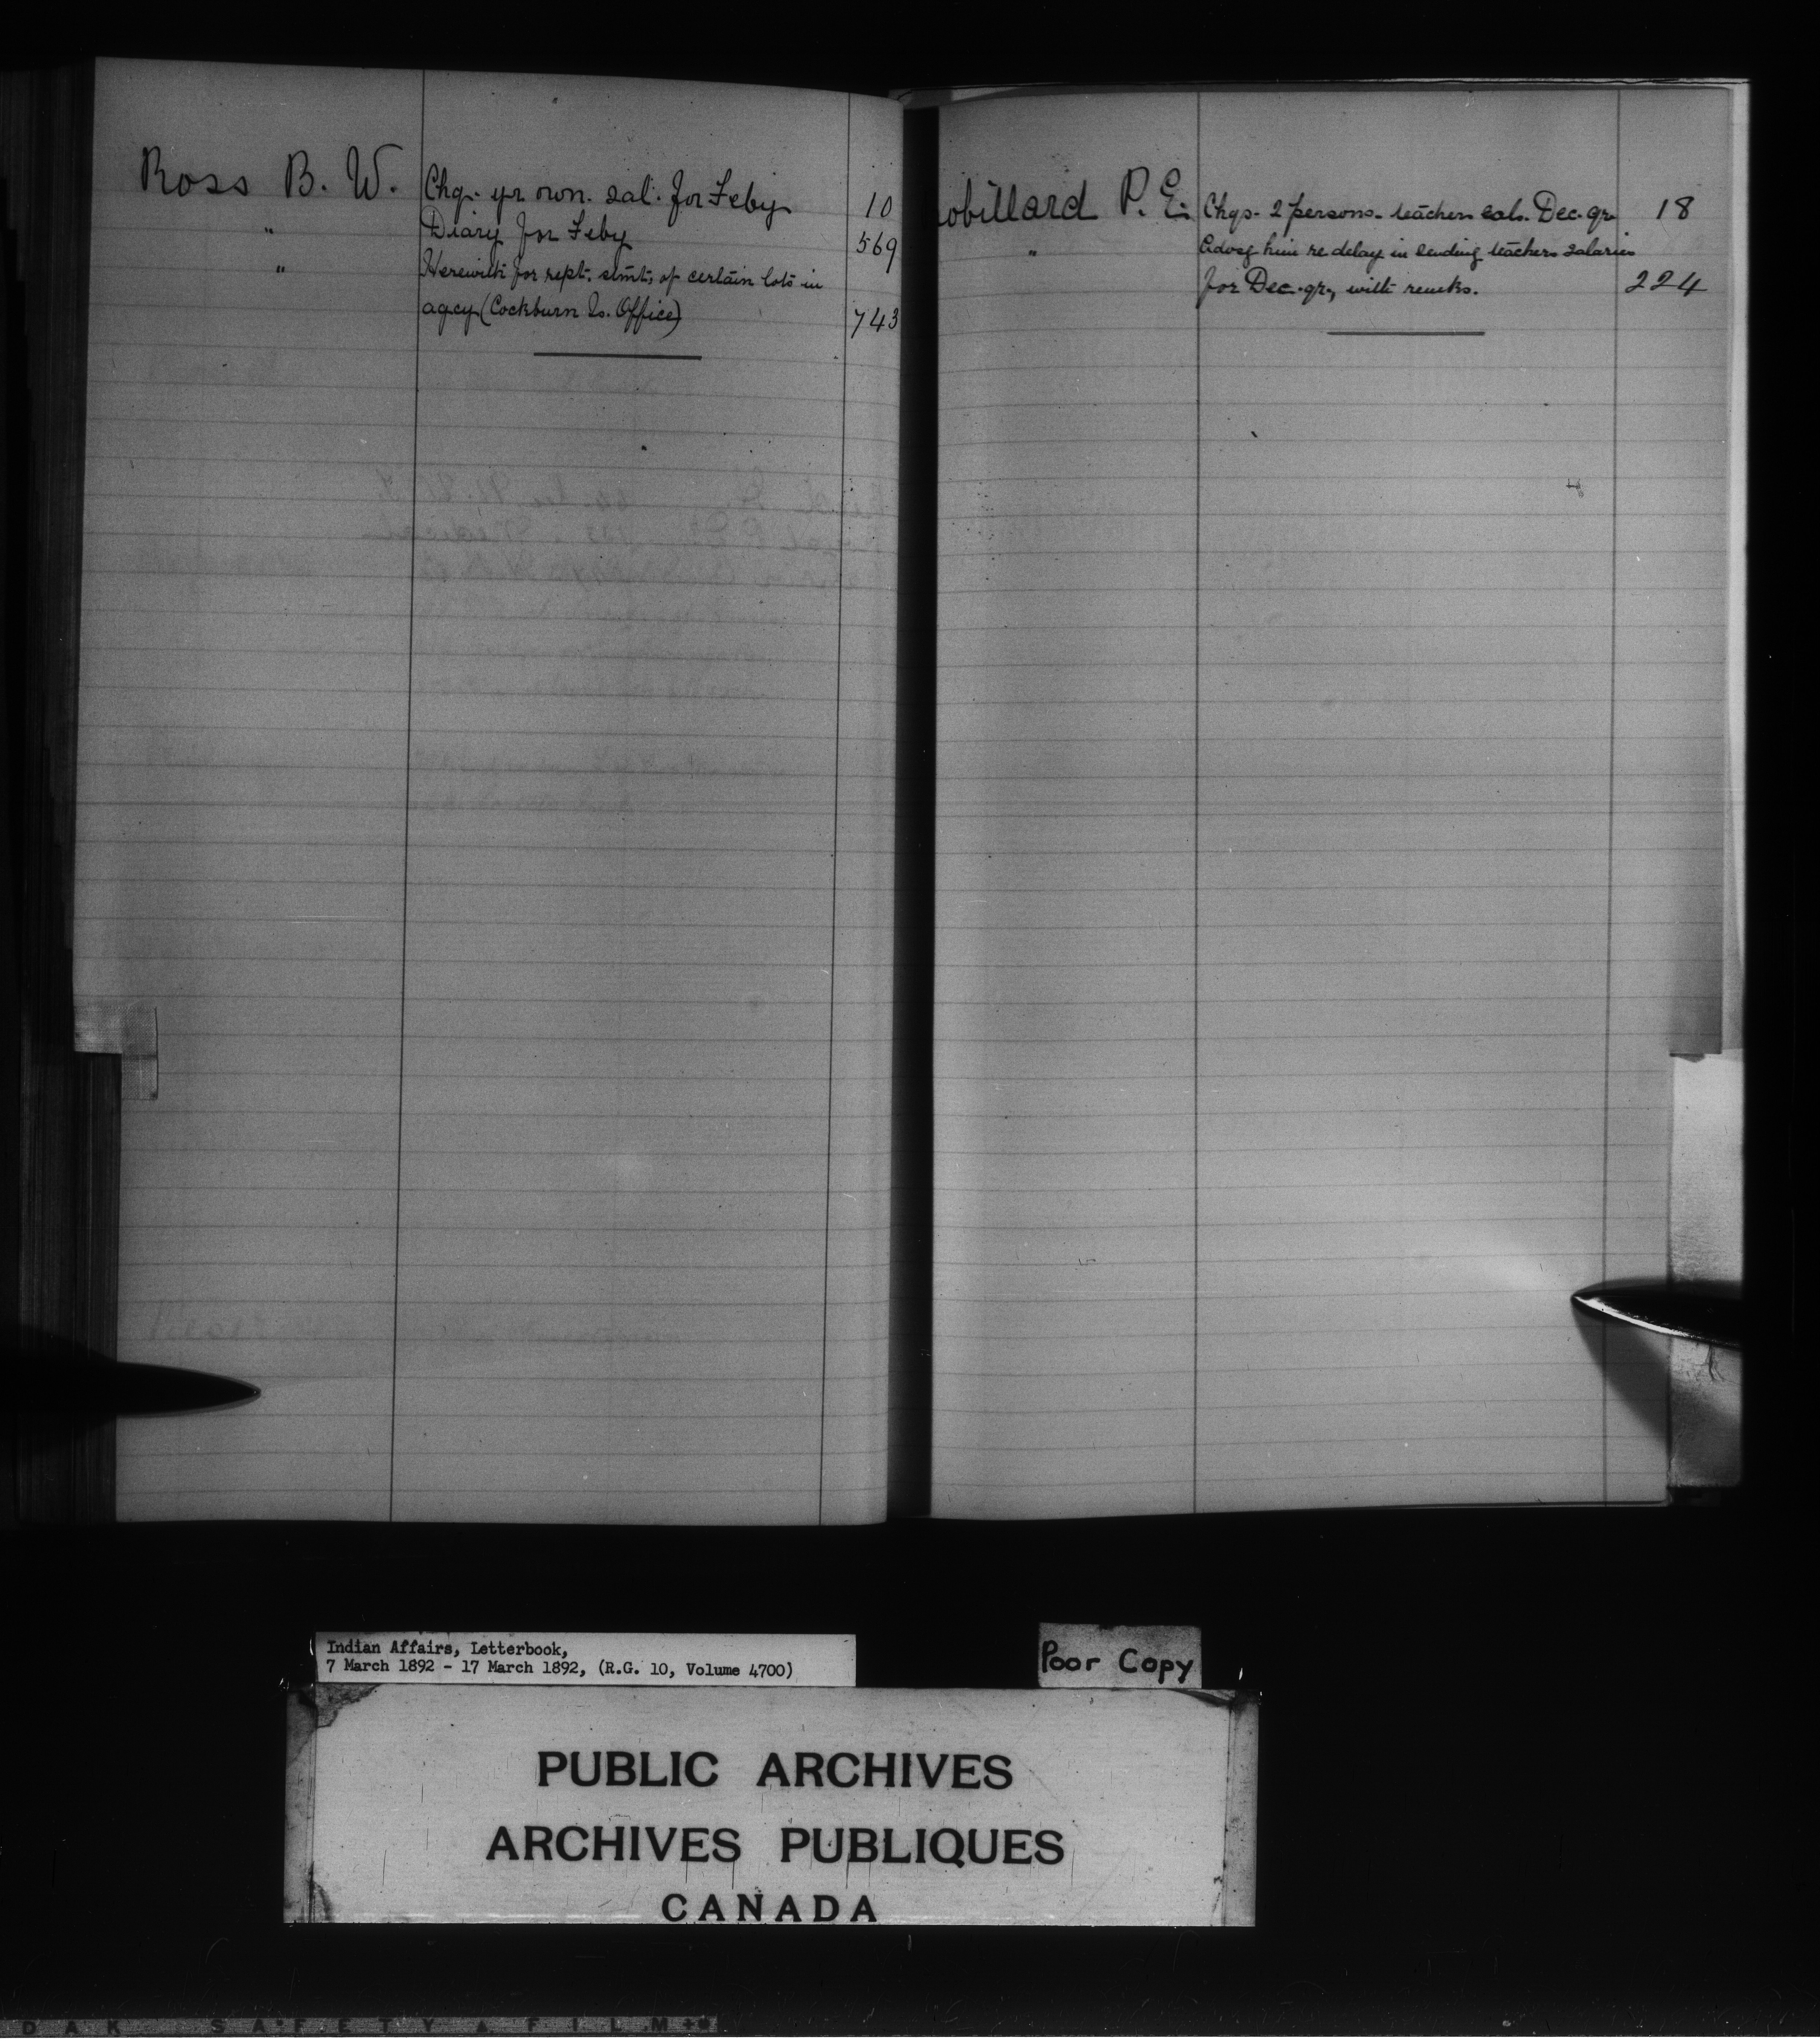 Ross B. W. Chq. yr own. sal. for Feby 10
" Diary for Feby 569
" Herewith for rept. stmt, of certain lots in
agcy (Cockburn Is. Office) 743
obillard P. E. Chqs. 2 persons. teachers sals. Dec. qr. 18
" Advsg him re delay in sending teachers salaries
for Dec. qr., with remks. 224
Indian Affairs, Letterbook,
7 March 1892 - 17 March 1892, (R.G. 10, Volume 4700)
Poor Copy
PUBLIC ARCHIVES
ARCHIVES PUBLIQUES
CANADA
DAK SAFETY FILM